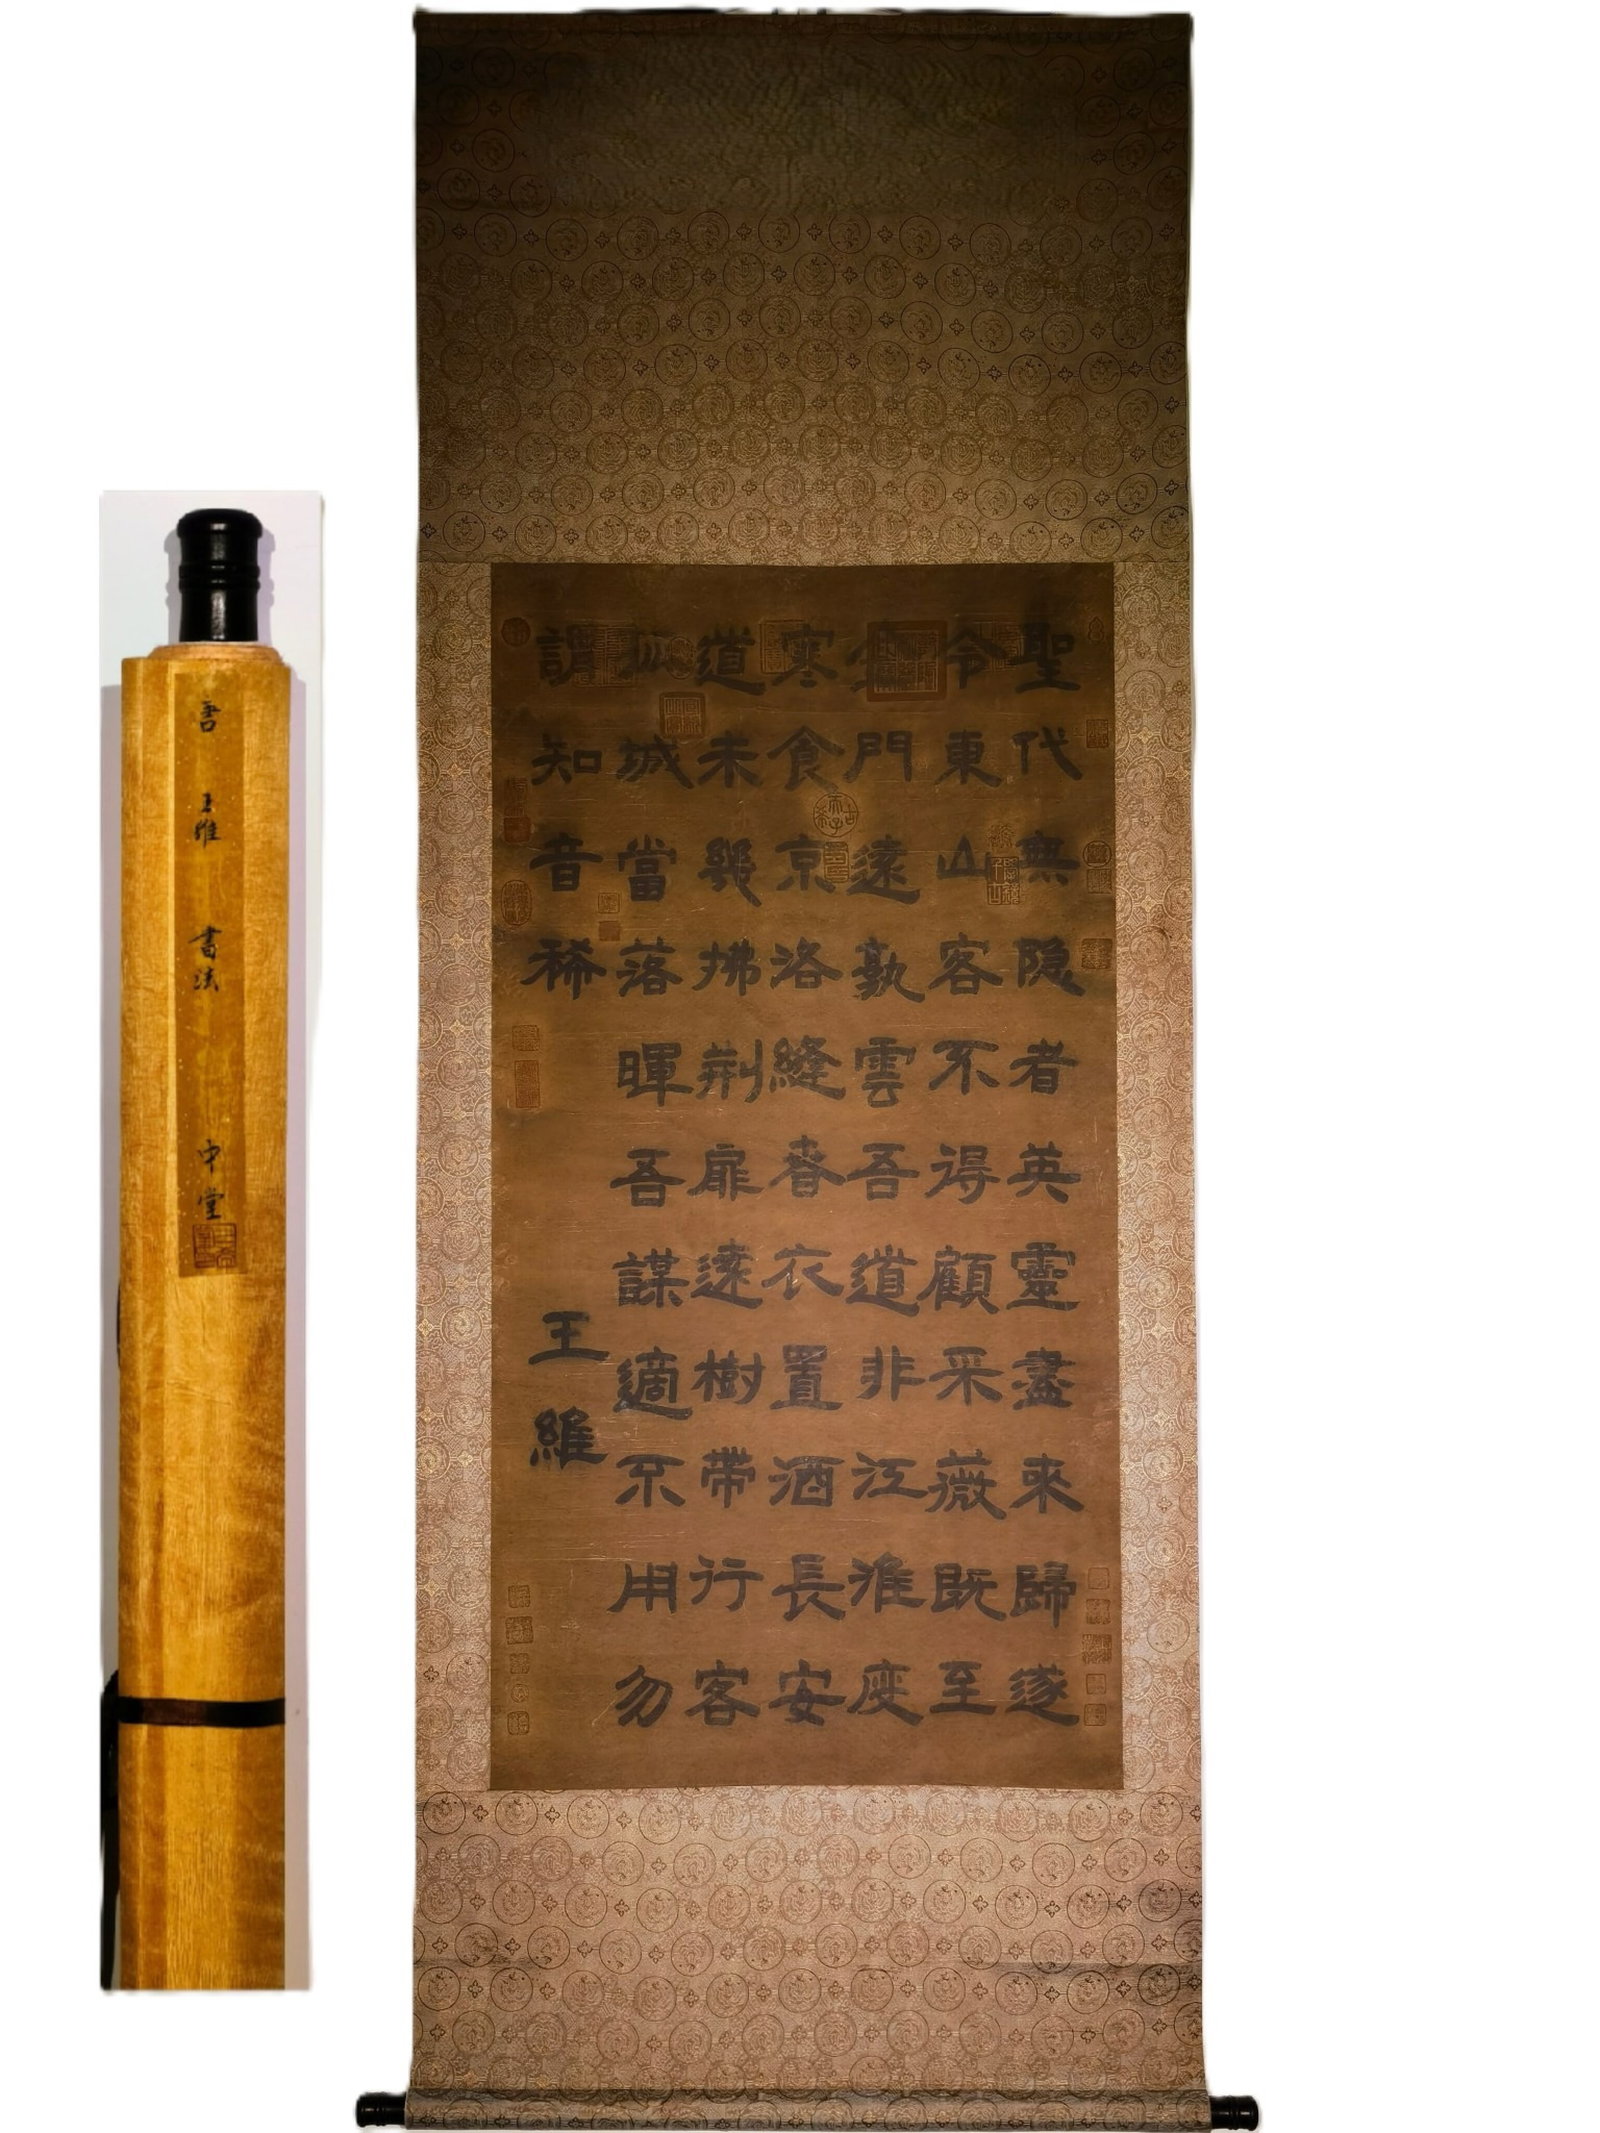 聖代無隐者英靈盡來歸遂
令東山客不得顧采薇既至
金門遠孰雲吾道非江淮度
寒食京洛縫春衣置酒長安
道未幾拂荆扉遠樹帶行客
孤城當落暉吾謀適不用勿
謂知音稀
王維
唐 王維 書法 中堂